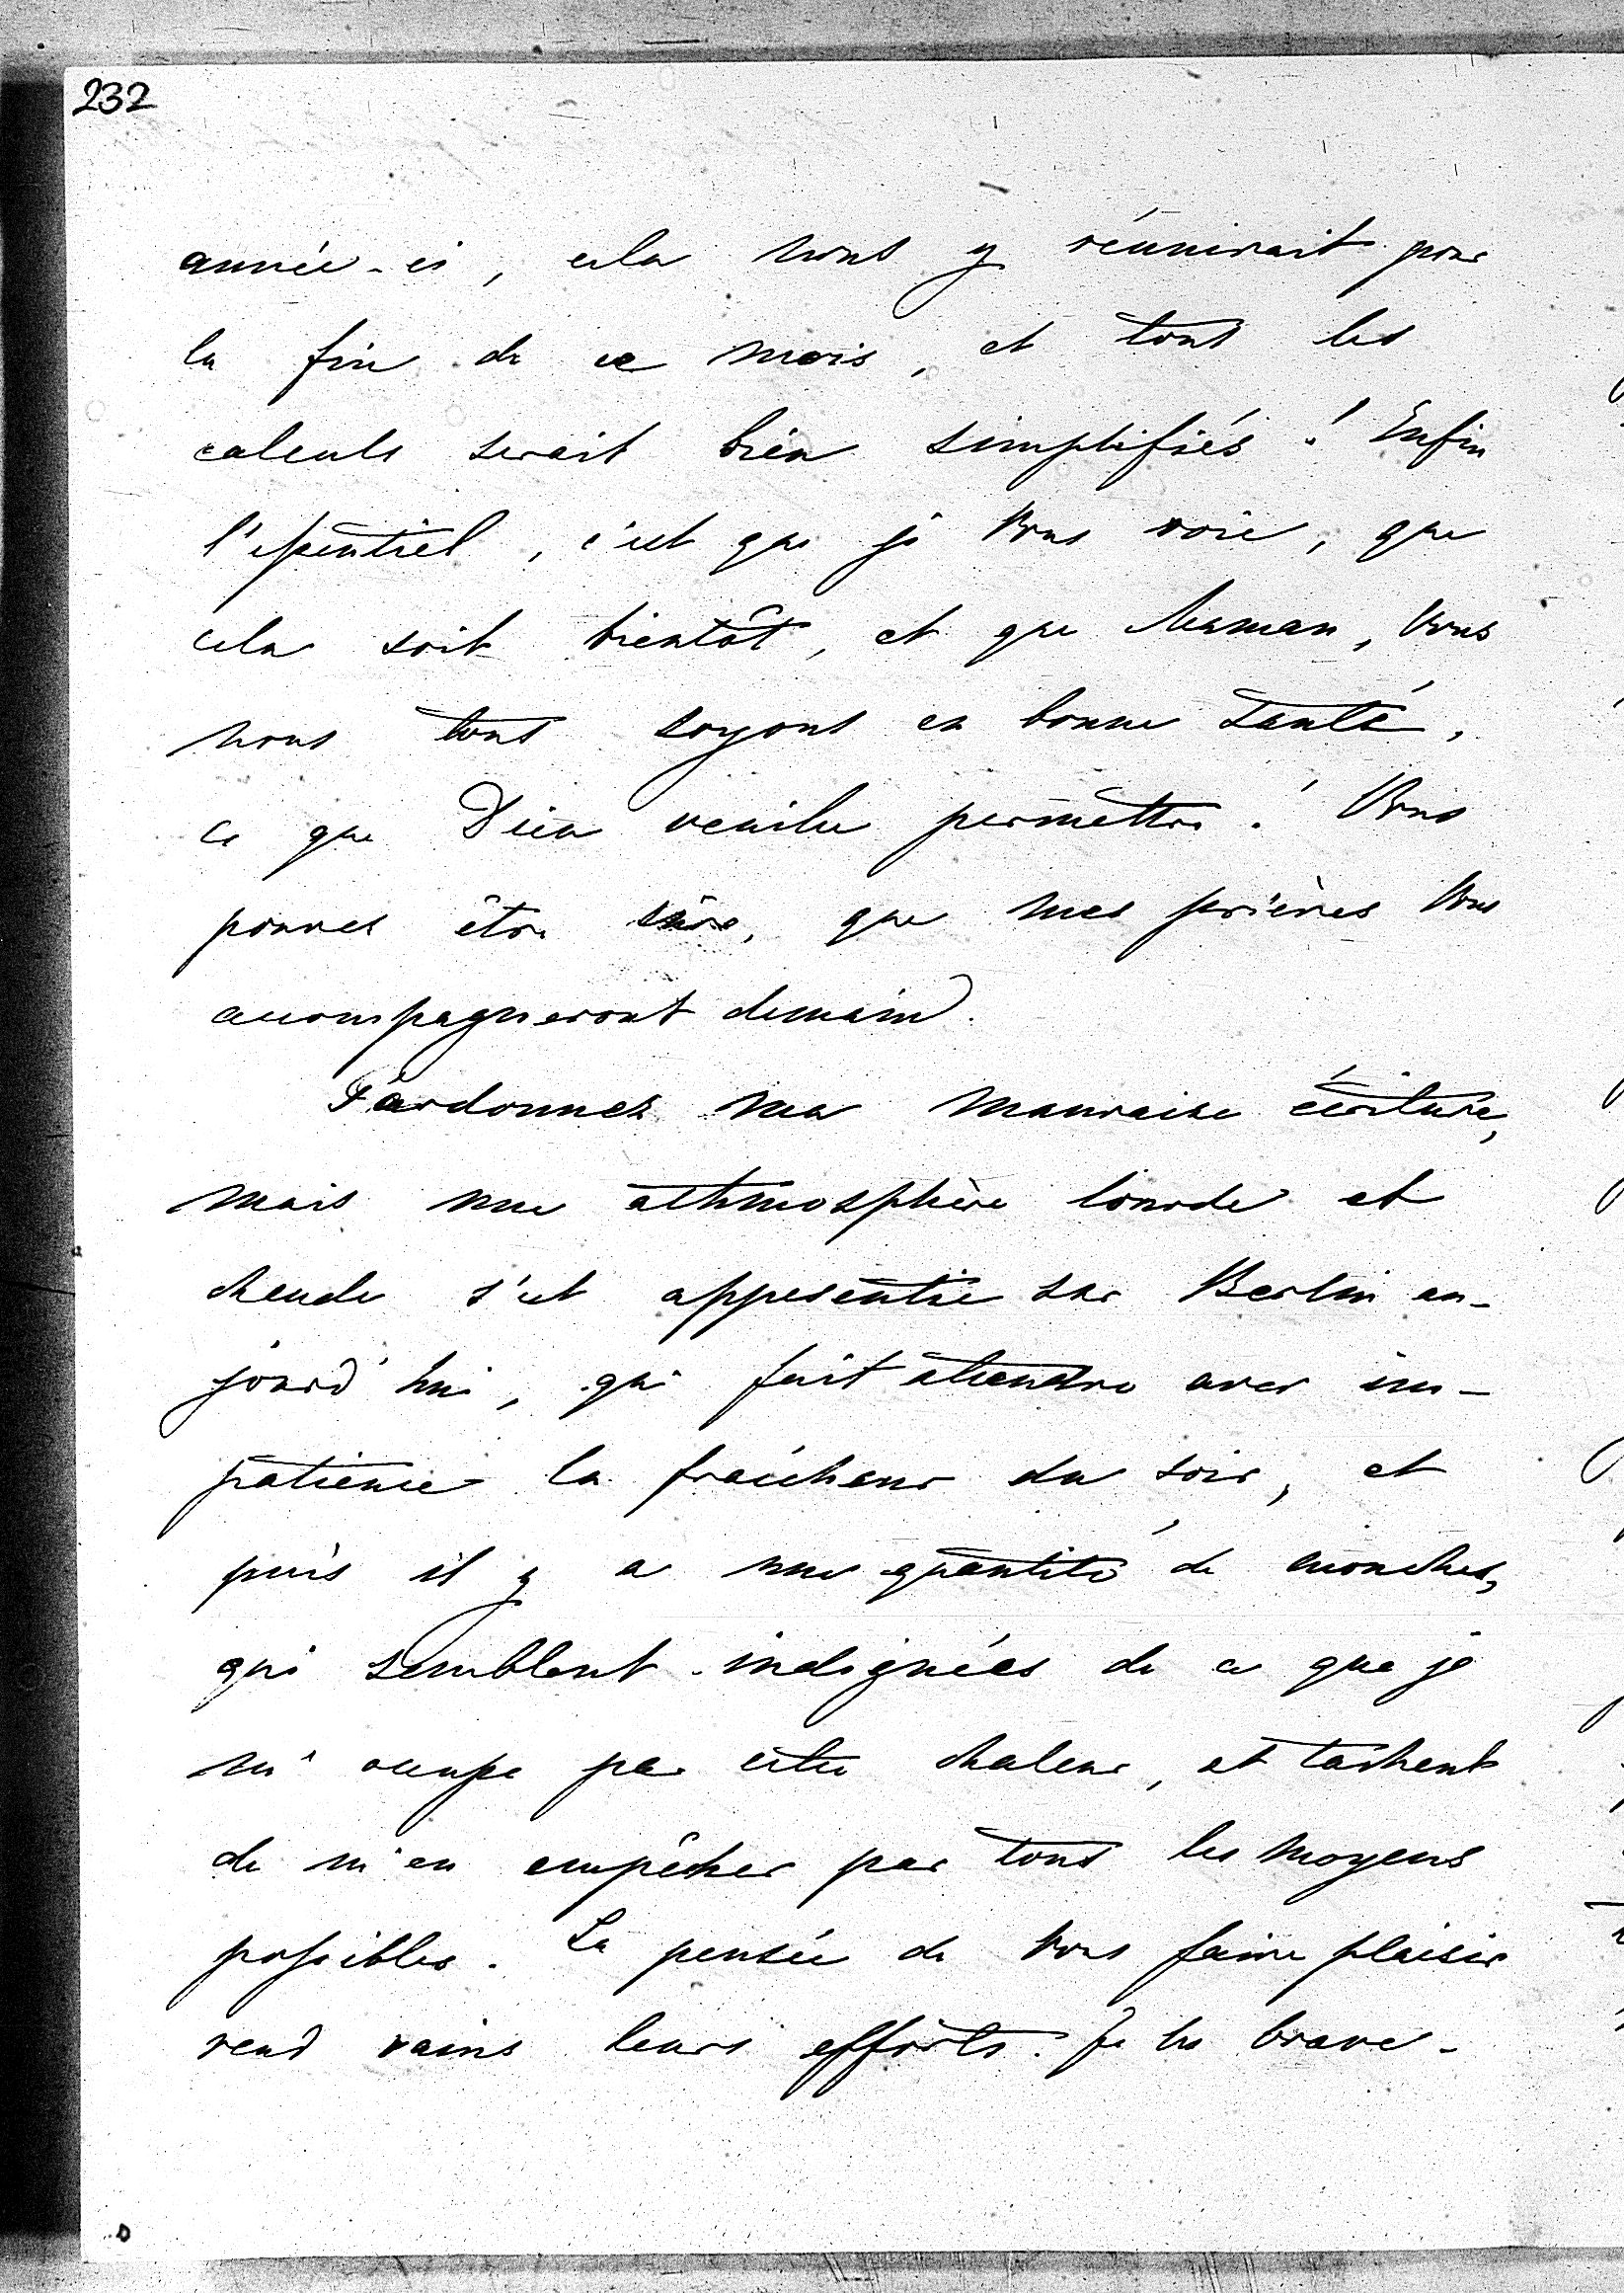 232
année-ci, cela nous y réunirait pour
la fin de ce mois, et tout les
calculs serait bien simplifiés! Enfin
l'essentiel, c'est que je Vous voie, que
cela soit bientôt, et que Maman, Vous
nous tous soyons en bonne santé,
ce que Dieu veuille permettre! Vous
pouvez être sûre, que mes prières Vous
accompagneront demain.
Pardonnez ma mauvaise écriture,
mais une athmosphère lourde et
chaude s'est appesentie sur Berlin au-
jourd'hui, qui fait attendre avec im-
patience la fraîcheur du soir, et
puis il y a une quantité de mouches,
qui semblent indignées de ce que je
m'occupe par cette chaleur, et tachent
de m'en empêcher par tous les moyens
possibles. La pensée de Vous faire plaisir
rend vains leurs efforts. Je les brave-